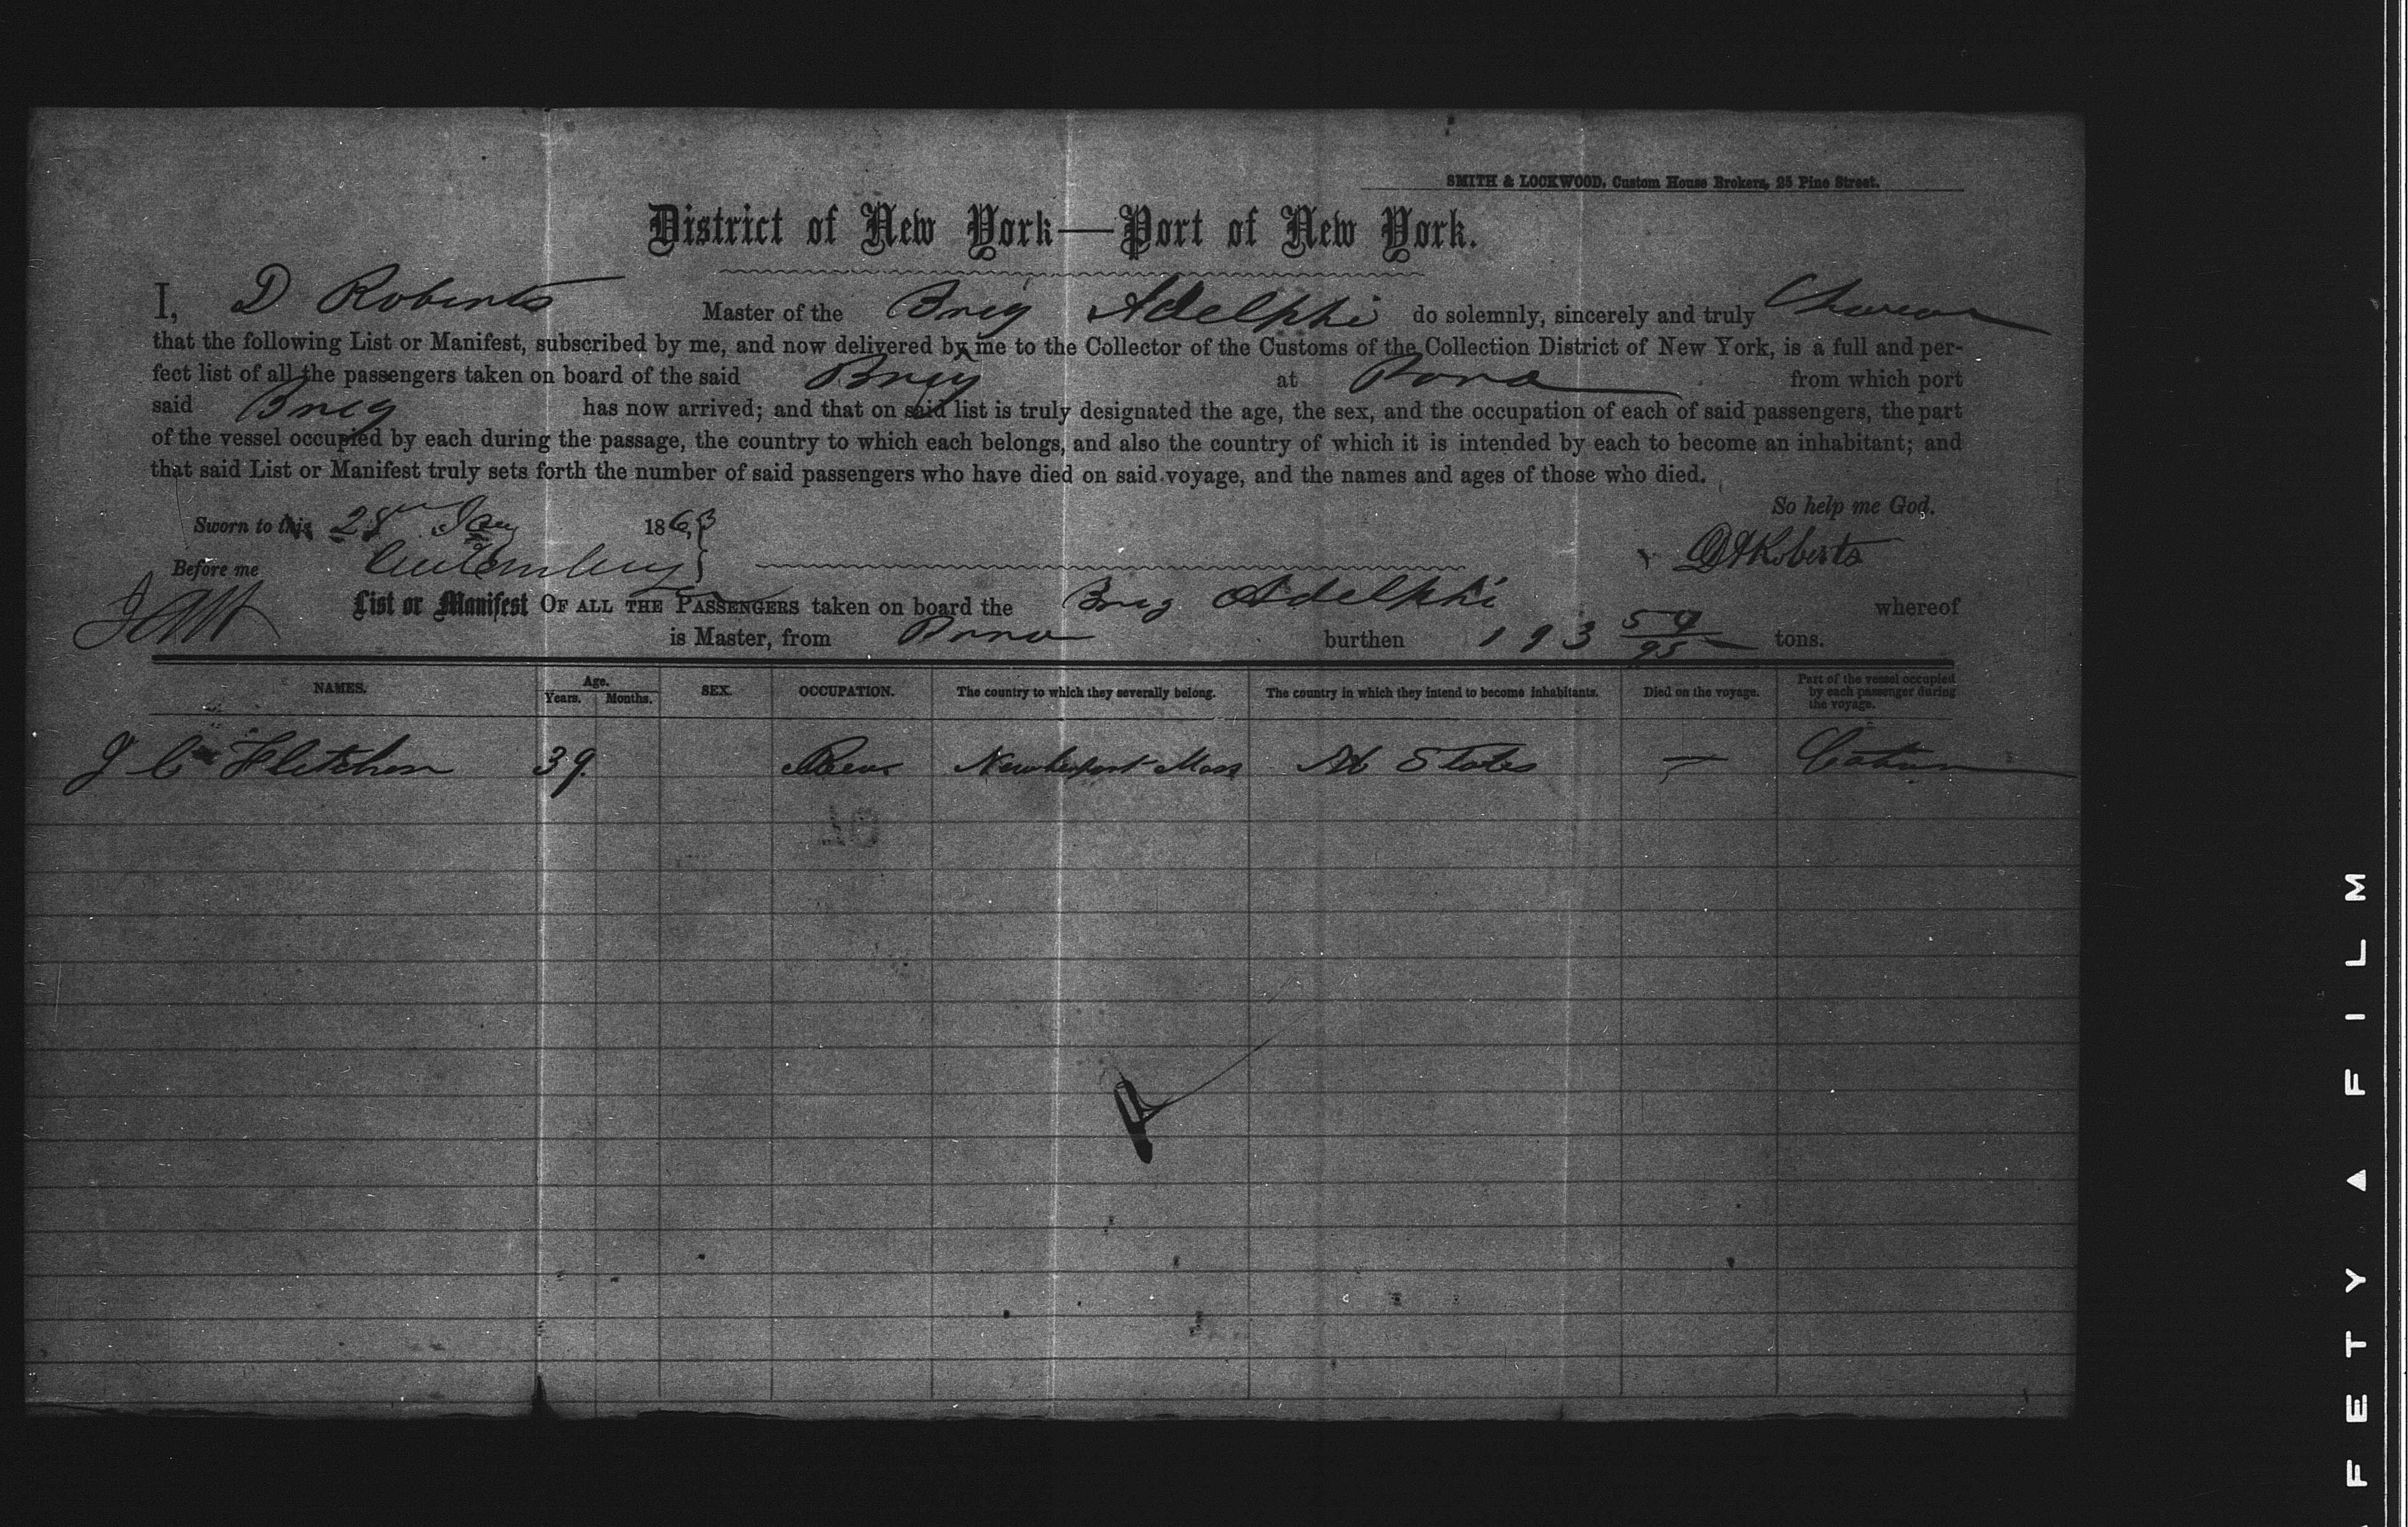 SMITH & LOCKWOOD, Custom House Brokers, 25 Pine Street.
District of New York—Port of New York.
I, D Roberts Master of the Brig Adelphi do solemnly, sincerely and truly
that the following List or Manifest, subscribed by me, and now delivered by me to the Collector of the Customs of the Collection District of New York, is a full and per-
fect list of all the passengers taken on board of the said Brig at Para from which port
said Brig has now arrived; and that on said list is truly designated the age, the sex, and the occupation of each of said passengers, the part
of the vessel occupied by each during the passage, the country to which each belongs, and also the country of which it is intended by each to become an inhabitant; and
that said List or Manifest truly sets forth the number of said passengers who have died on said voyage, and the names and ages of those who died.
So help me God.
Sworn to this 28 Jany 1863
Before me
Roberts
List or Manifest OF ALL THE PASSENGERS taken on board the Brig Adelphi whereof
is Master, from Para burthen 193 54/95 tons.
NAMES. Age. Years. Months. SEX. OCCUPATION. The country to which they severally belong. The country in which they intend to become inhabitants. Died on the voyage. Part of the vessel occupied by each passenger during the voyage.
J C Fletcher 39 Newburyport Mass States — Cabin
FETY ▲ FILM